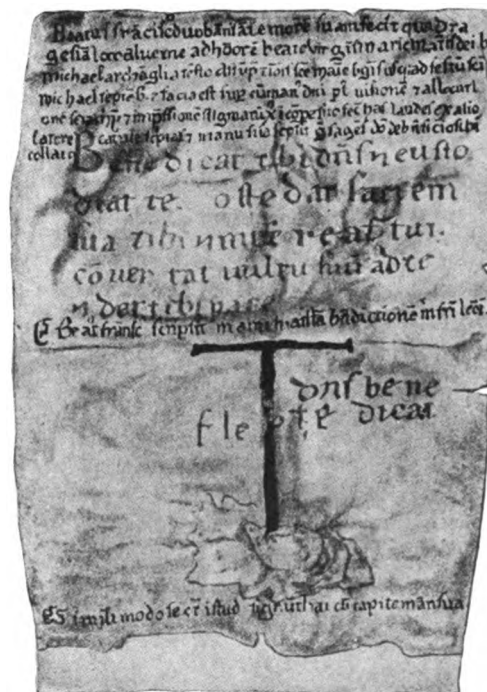 Beatus frāciscꝰ duobꝰ annis an̄ morte suam fecit quadra
gesimā ī loco aluerne ad honorē beate virginis marie matris dei 7 b
michael archāgli a festo assūptiōis sce marie vgīs usqꝫ ad festū sci
michael septēb. 7 facta est sup eū manꝰ dni p visionē 7 allocuti
onē seraphym 7 impssionē stigmatū xi ī corpe suo fec has laudes ex alio
latere catule scriptas 7 manu sua scpsit grās agēs dn̄o de bnficio sibi
collato
Benedicat tibi dn̄s 7 custo
diat te. oste dat faciem
sua tibi 7 misereatur tui.
cō uer tat uultu suū ad te
7 det tibi pace
Beatꝰ francisc scripsit manu sua istā bn̄dictionē m fri leoni
dn̄s bene
f leo te dicat
Simili modo fecit istud signū thau cū capite manu sua